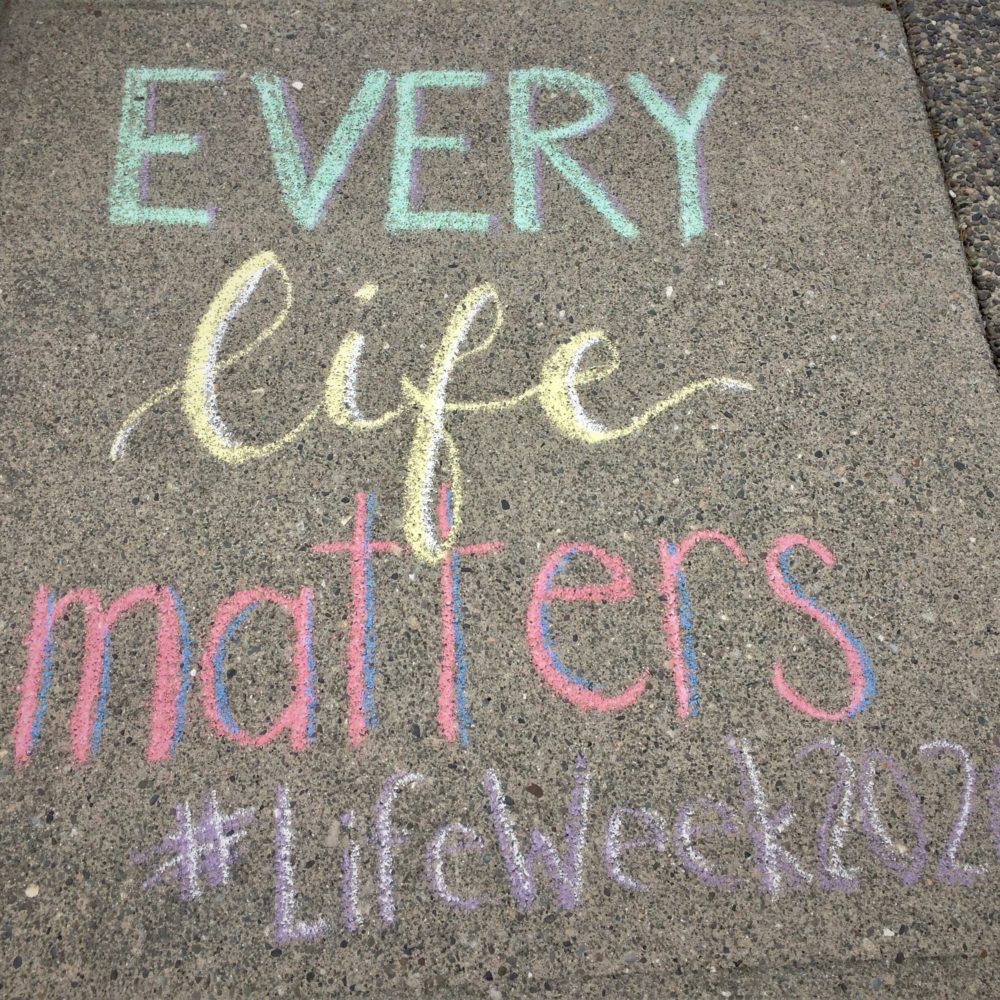 EVERY
life
matters
#LifeWeek202